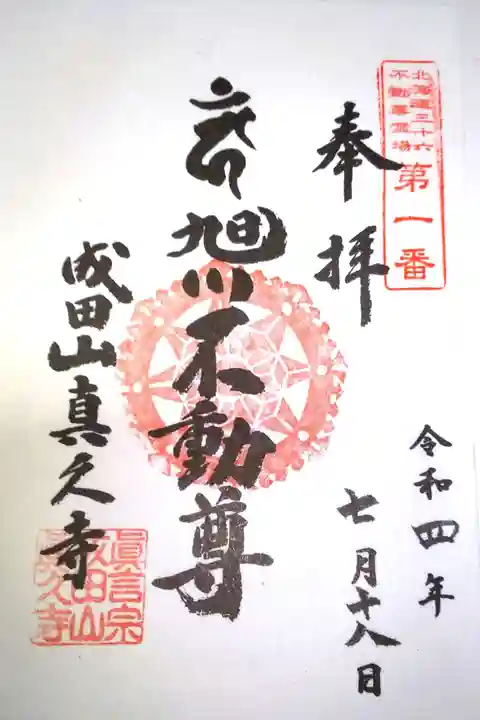 北海道三十六
不動尊霊場
第一番
奉拝
令和四年
七月十八日
旭川不動尊
成田山真久寺
眞言宗
成田山
真久寺